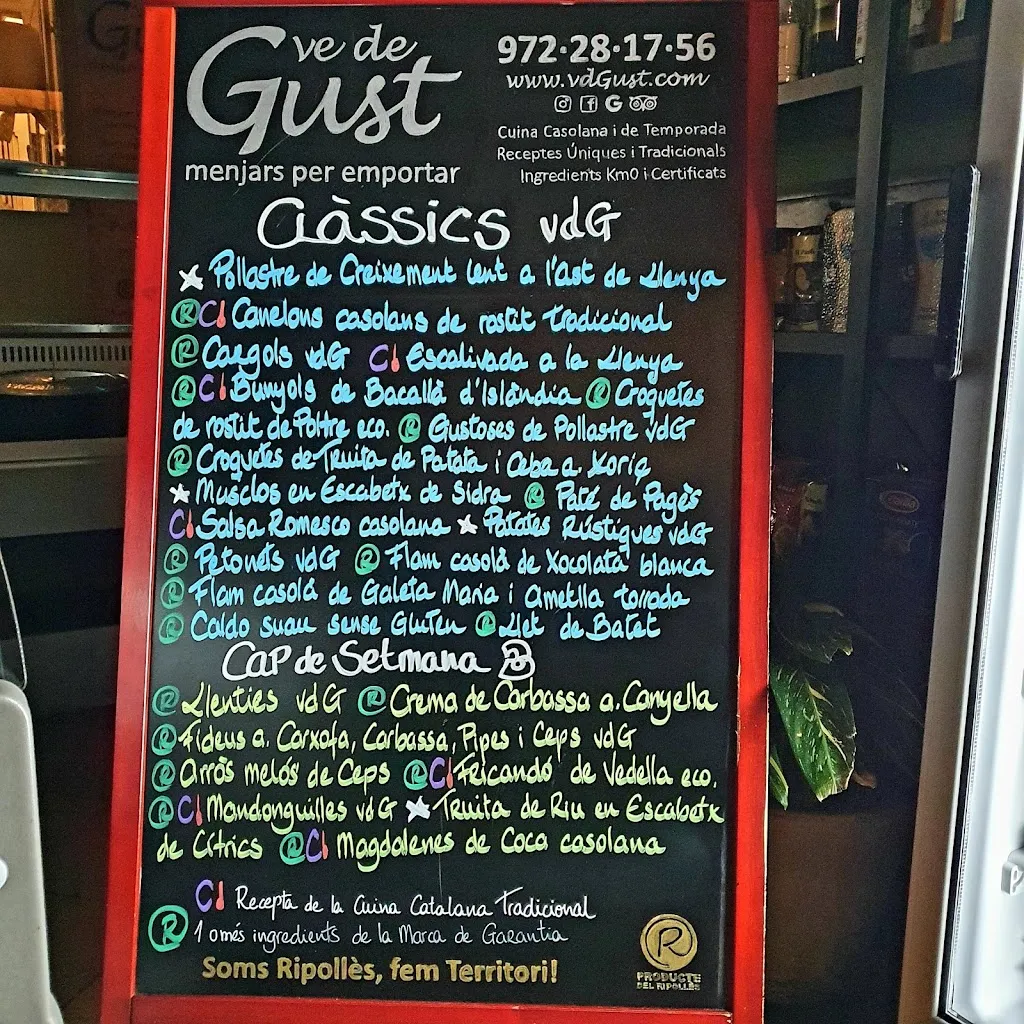 ve de
Gust
menjars per emportar
972·28·17·56
www.vdGust.com
Cuina Casolana i de Temporada
Receptes Úniques i Tradicionals
Ingredients Km0 i Certificats
Clàssics vdG
Pollastre de Creixement lent a l'ast de Llenya
R C Canelons casolans de rostit tradicional
R Cargols vdG C Escalivada a la Llenya
R C Bunyols de Bacallà d'Islàndia R Croquetes
de rostit de Poltre eco. R Gustoses de Pollastre vdG
R Croquetes de Truita de Patata i Ceba a. Xoriç
Musclos en Escabetx de Sidra R Paté de Pagès
C Salsa Romesco casolana Patates Rústiques vdG
R Petonets vdG R Flam casolà de Xocolata blanca
R Flam casolà de Galeta Maria i Ametlla torrada
R Caldo suau sense Gluten R Llet de Batet
Cap de Setmana
R Llenties vdG R Crema de Carbassa a. Canyella
R Fideus a. Carxofa, Carbassa, Pipes i Ceps vdG
R Arròs melós de Ceps R C Fricandó de Vedella eco.
R C Mandonguilles vdG Truita de Riu en Escabetx
de Cítrics R C Magdalenes de Coca casolana
C Recepta de la Cuina Catalana Tradicional
R 1 o més ingredients de la Marca de Garantia
Soms Ripollès, fem Territori!
R
PRODUCTE
DEL RIPOLLÈS